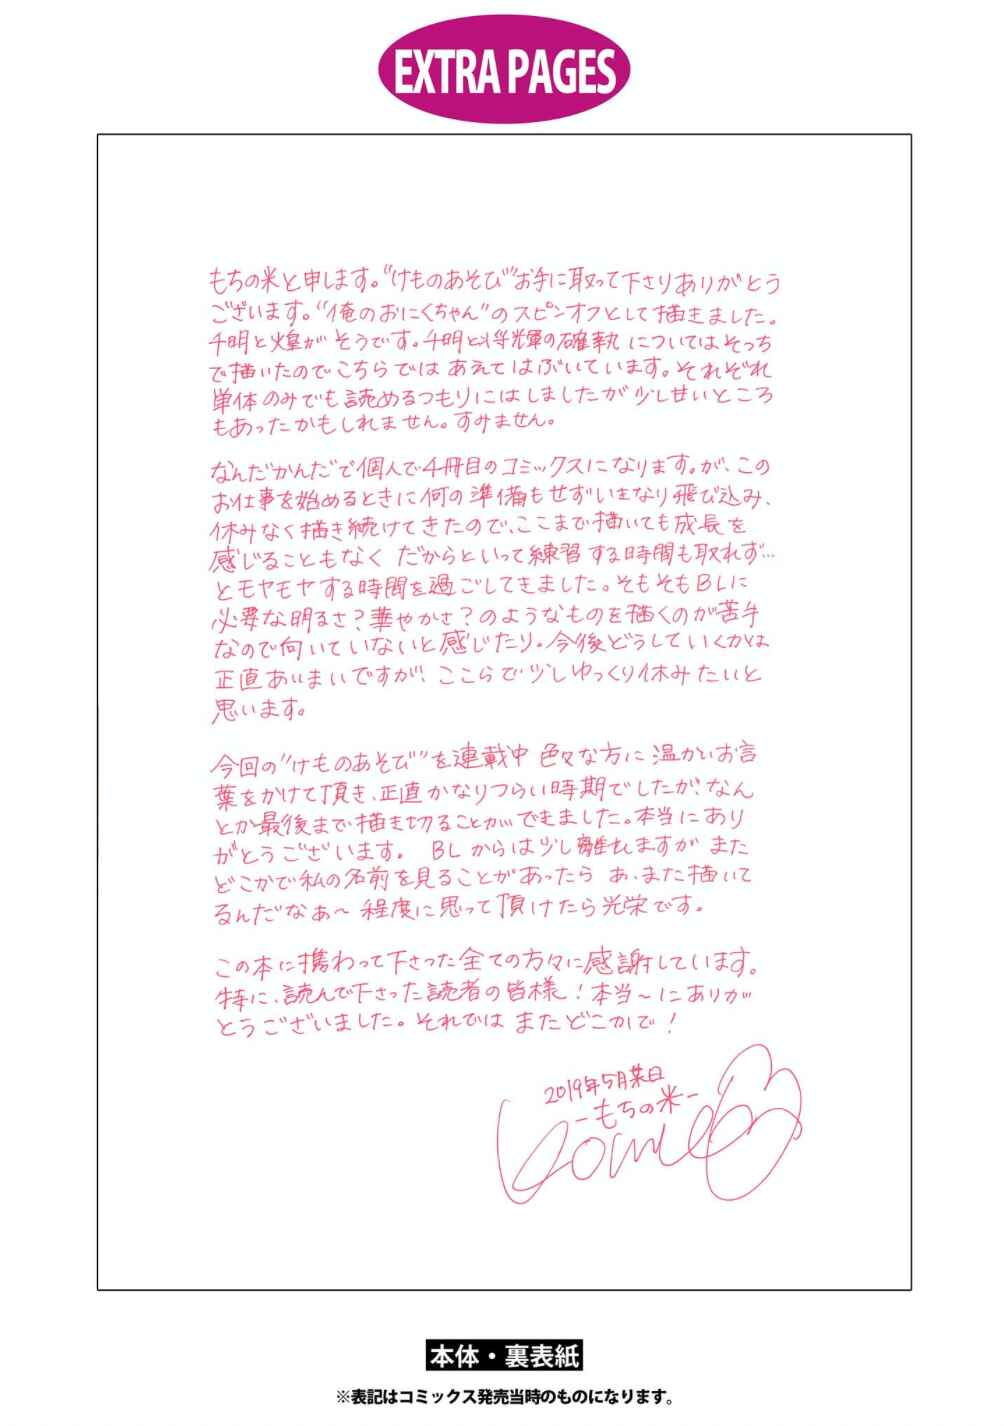 EXTRA PAGES
もちの米と申します。"けものあそび"お手に取って下さりありがとう
ございます。"俺のおにくちゃん"のスピンオフとして描きました。
千明と煌がそうです。千明と将輝の確執についてはそっち
で描いたのでこちらではあえてはぶいています。それぞれ
単体のみでも読めるつもりにはしましたが少し甘いところ
もあったかもしれません。すみません。
なんだかんだで個人で4冊目のコミックスになります。が、この
お仕事を始めるときに何の準備もせずいきなり飛び込み、
休みなく描き続けてきたので、ここまで描いても成長を
感じることもなく だからといって練習する時間も取れず…
とモヤモヤする時間を過ごしてきました。そもそもBLに
必要な明るさ?華やかさ?のようなものを描くのが苦手
なので向いていないと感じたり。今後どうしていくかは
正直あいまいですが、ここらで少しゆっくり休みたいと
思います。
今回の"けものあそび"を連載中 色々な方に温かいお言
葉をかけて頂き、正直かなりつらい時期でしたが、なん
とか最後まで描き切ることができました。本当にあり
がとうございます。 BLからは少し離れますがまた
どこかで私の名前を見ることがあったら あ、また描いて
るんだなぁ〜程度に思って頂けたら光栄です。
この本に携わって下さった全ての方々に感謝しています。
特に、読んで下さった読者の皆様!本当〜にありが
とうございました。それではまたどこかで!
2019年5月某日
-もちの米-
Kome
本体・裏表紙
※表記はコミックス発売当時のものになります。